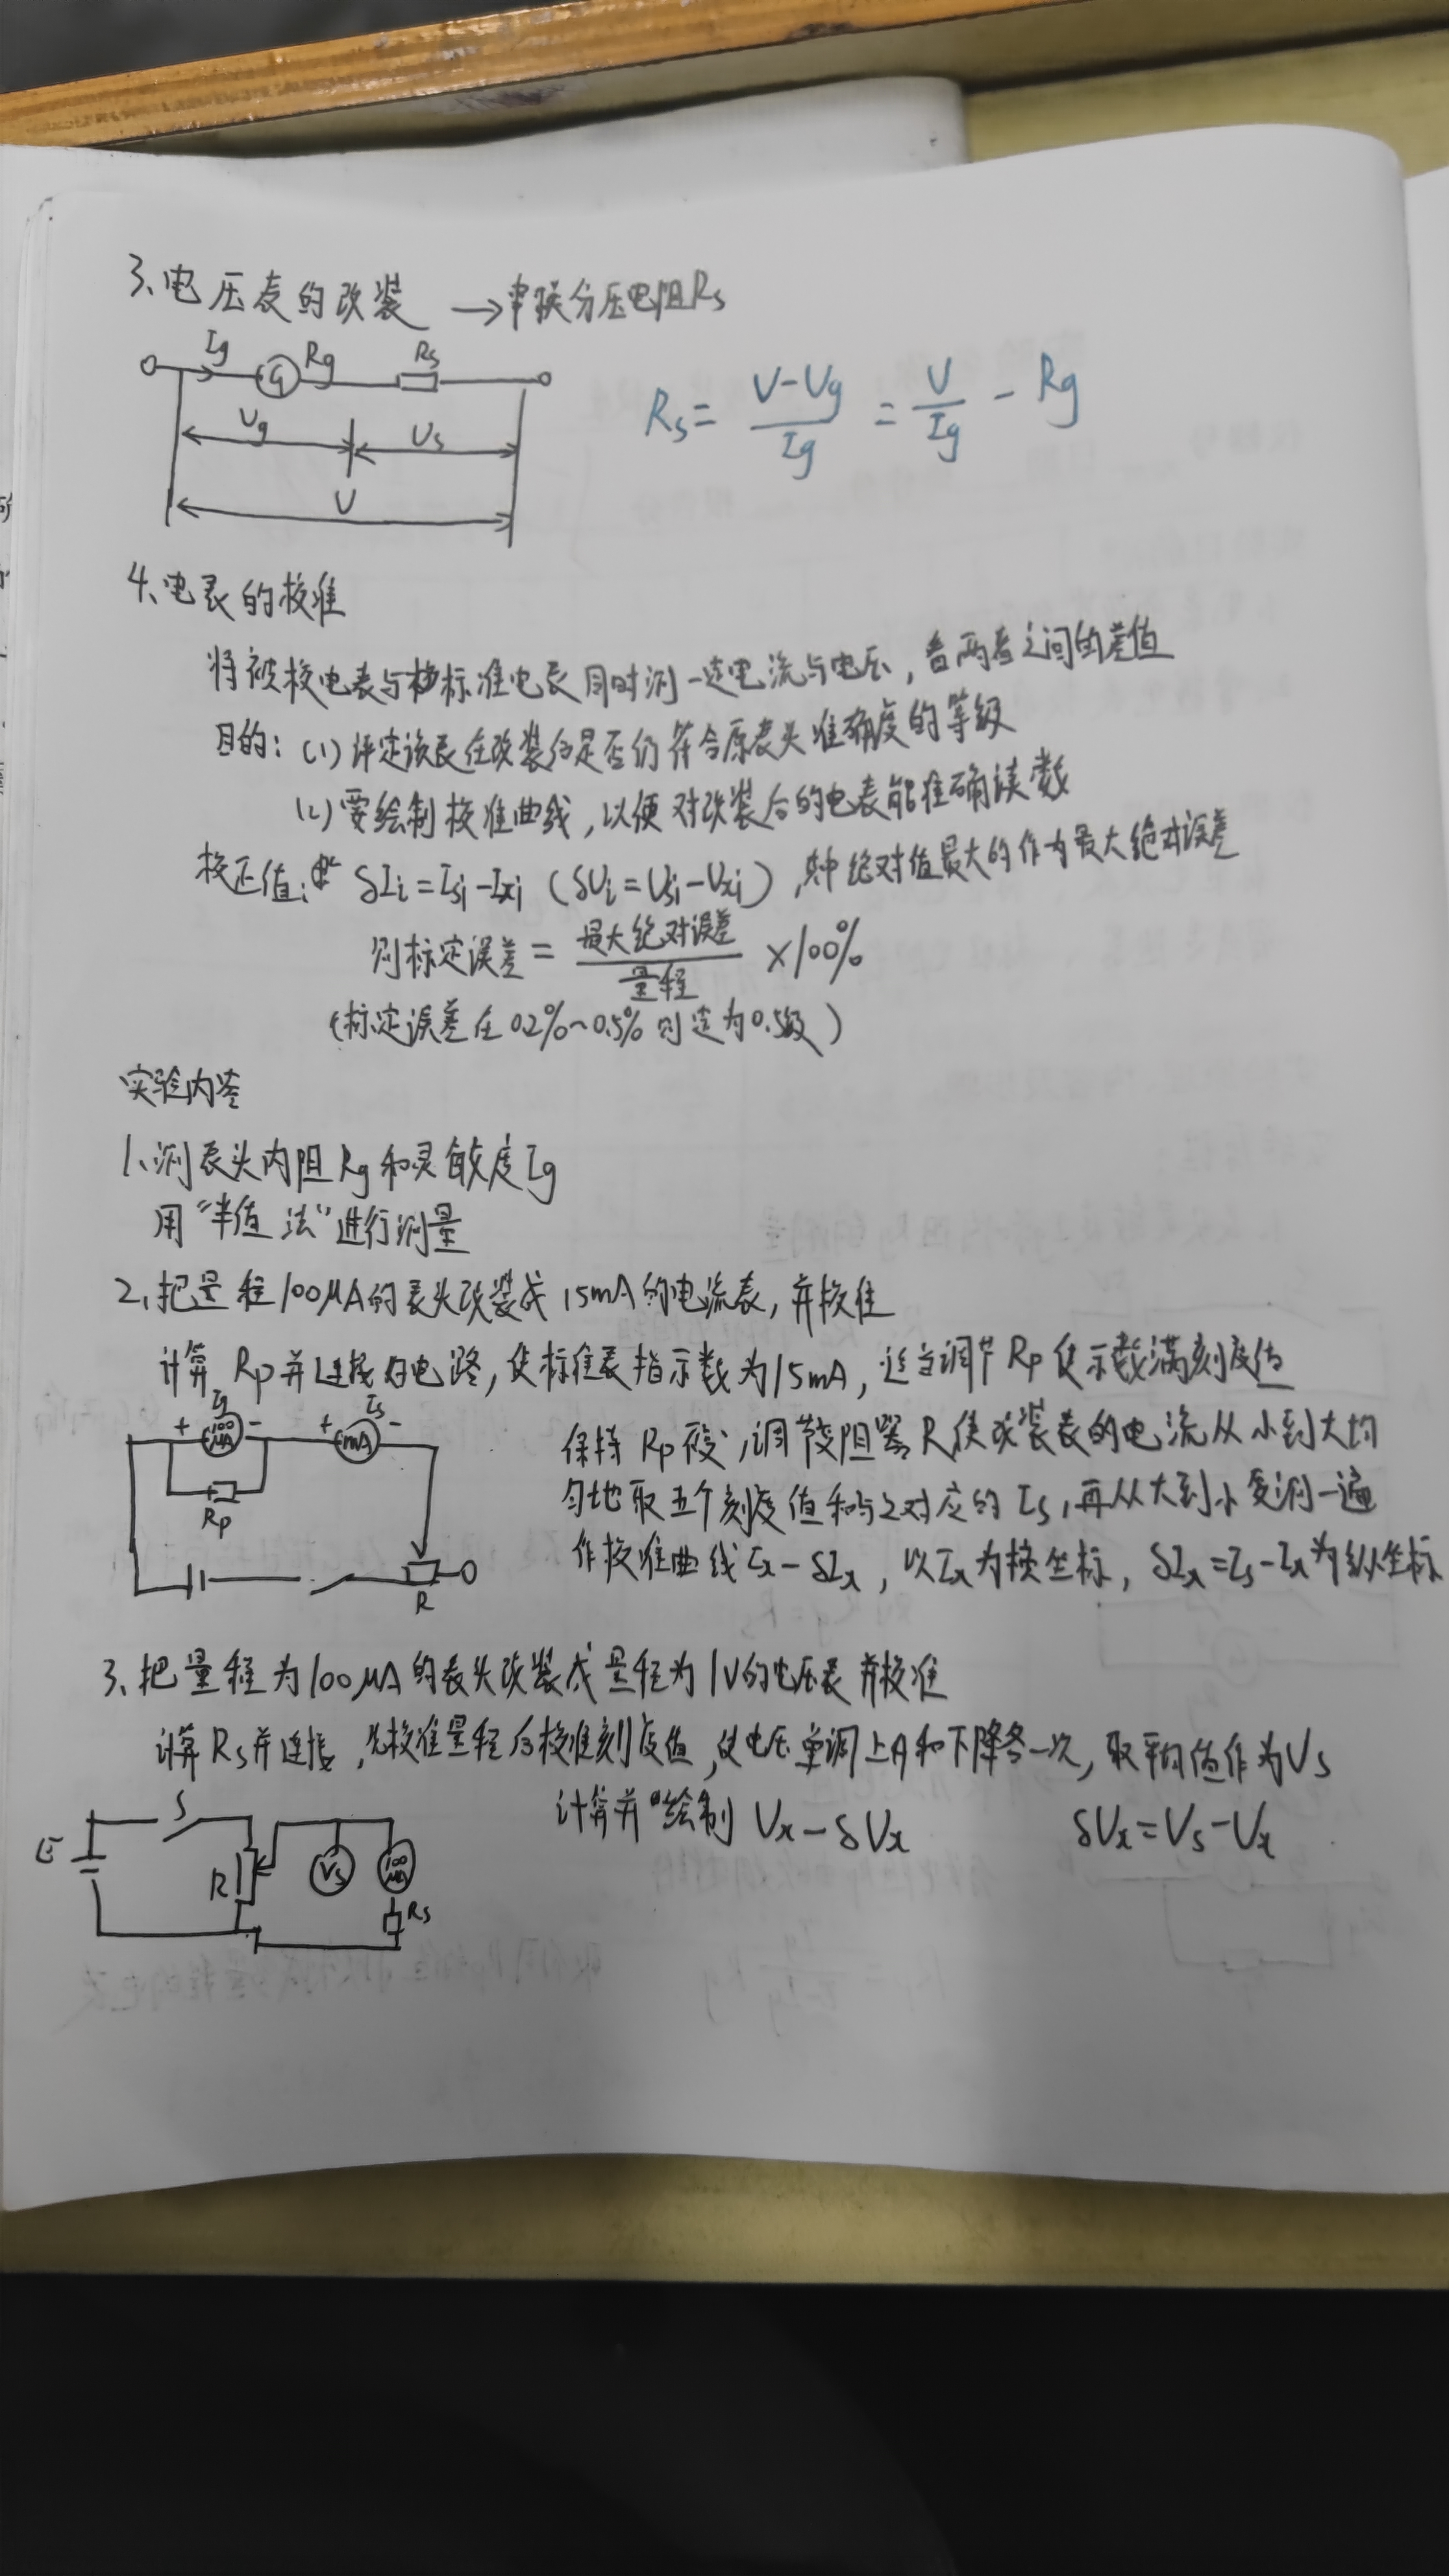 3、电压表的改装 →串联分压电阻Rs
Ig G Rg Rs
Ug Us
U
Rs = (V-Vg)/Ig = V/Ig - Rg
4、电表的校准
将被校电表与标准电表同时测一定电流与电压，看两者之间的差值
目的：(1) 评定该表在改装后是否仍符合原表头准确度的等级
(2) 要绘制校准曲线，以便对改装后的电表能准确读数
校正值： δIi = Isi - Ixi (δUi = Usi - Uxi) ，其中绝对值最大的作为最大绝对误差
则标定误差 = 最大绝对误差/量程 ×100%
(标定误差在0.2%~0.5%则定为0.5级)
实验内容
1、测表头内阻Rg和灵敏度Ig
用“半值法”进行测量
2、把量程100μA的表头改装成15mA的电流表，并校准
计算Rp并连接好电路，使标准表指示数为15mA，适当调节Rp使示数满刻度值
Ig Is
+ 100μA - + mA -
Rp
R
保持Rp不变，调节变阻器R使改装表的电流从小到大均
匀地取五个刻度值和与之对应的Is，再从大到小复测一遍
作校准曲线Ix-δIx，以Ix为横坐标，δIx=Is-Ix为纵坐标
3、把量程为100μA的表头改装成量程为1V的电压表并校准
计算Rs并连接，先校准量程后校准刻度值，使电压单调上升和下降各一次，取平均值作为Vs
计算并绘制Vx-δVx δVx=Vs-Vx
E S R Vs 100μA Rs